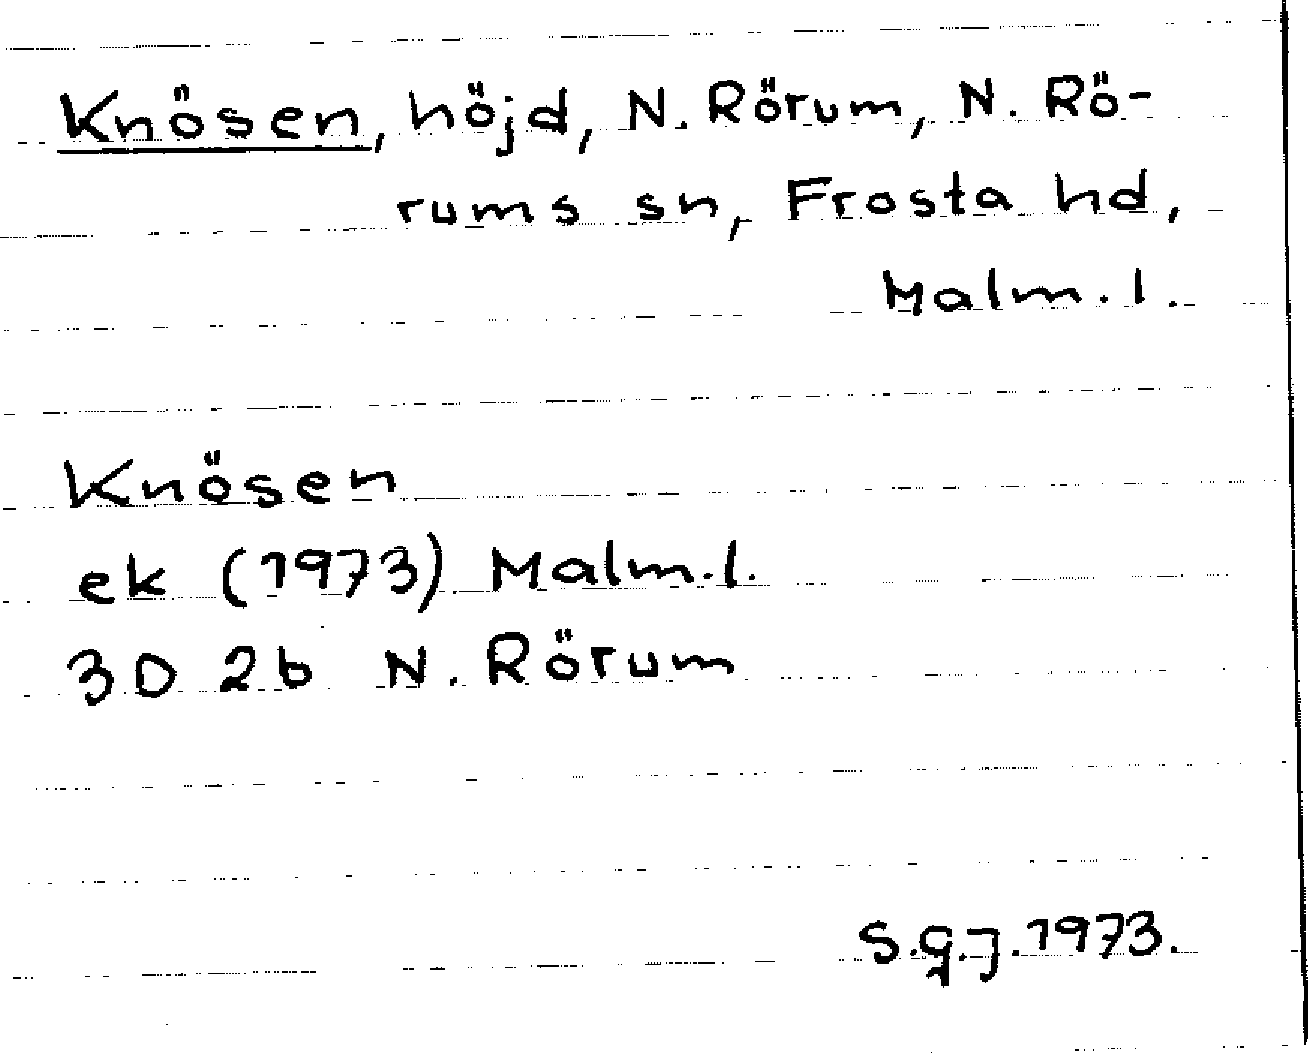 Knösen, höjd, N. Rörum, N. Rö-
rums sn, Frosta hd,
Malm. l.
Knösen
ek (1973) Malm. l.
3D 2b N. Rörum
S.g.J. 1973.